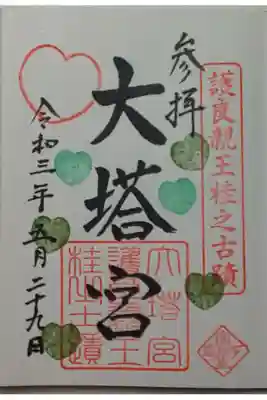 護良親王桂之古蹟
参拝
大塔宮
令和三年五月二十九日
大塔宮
護良親王
桂之古蹟